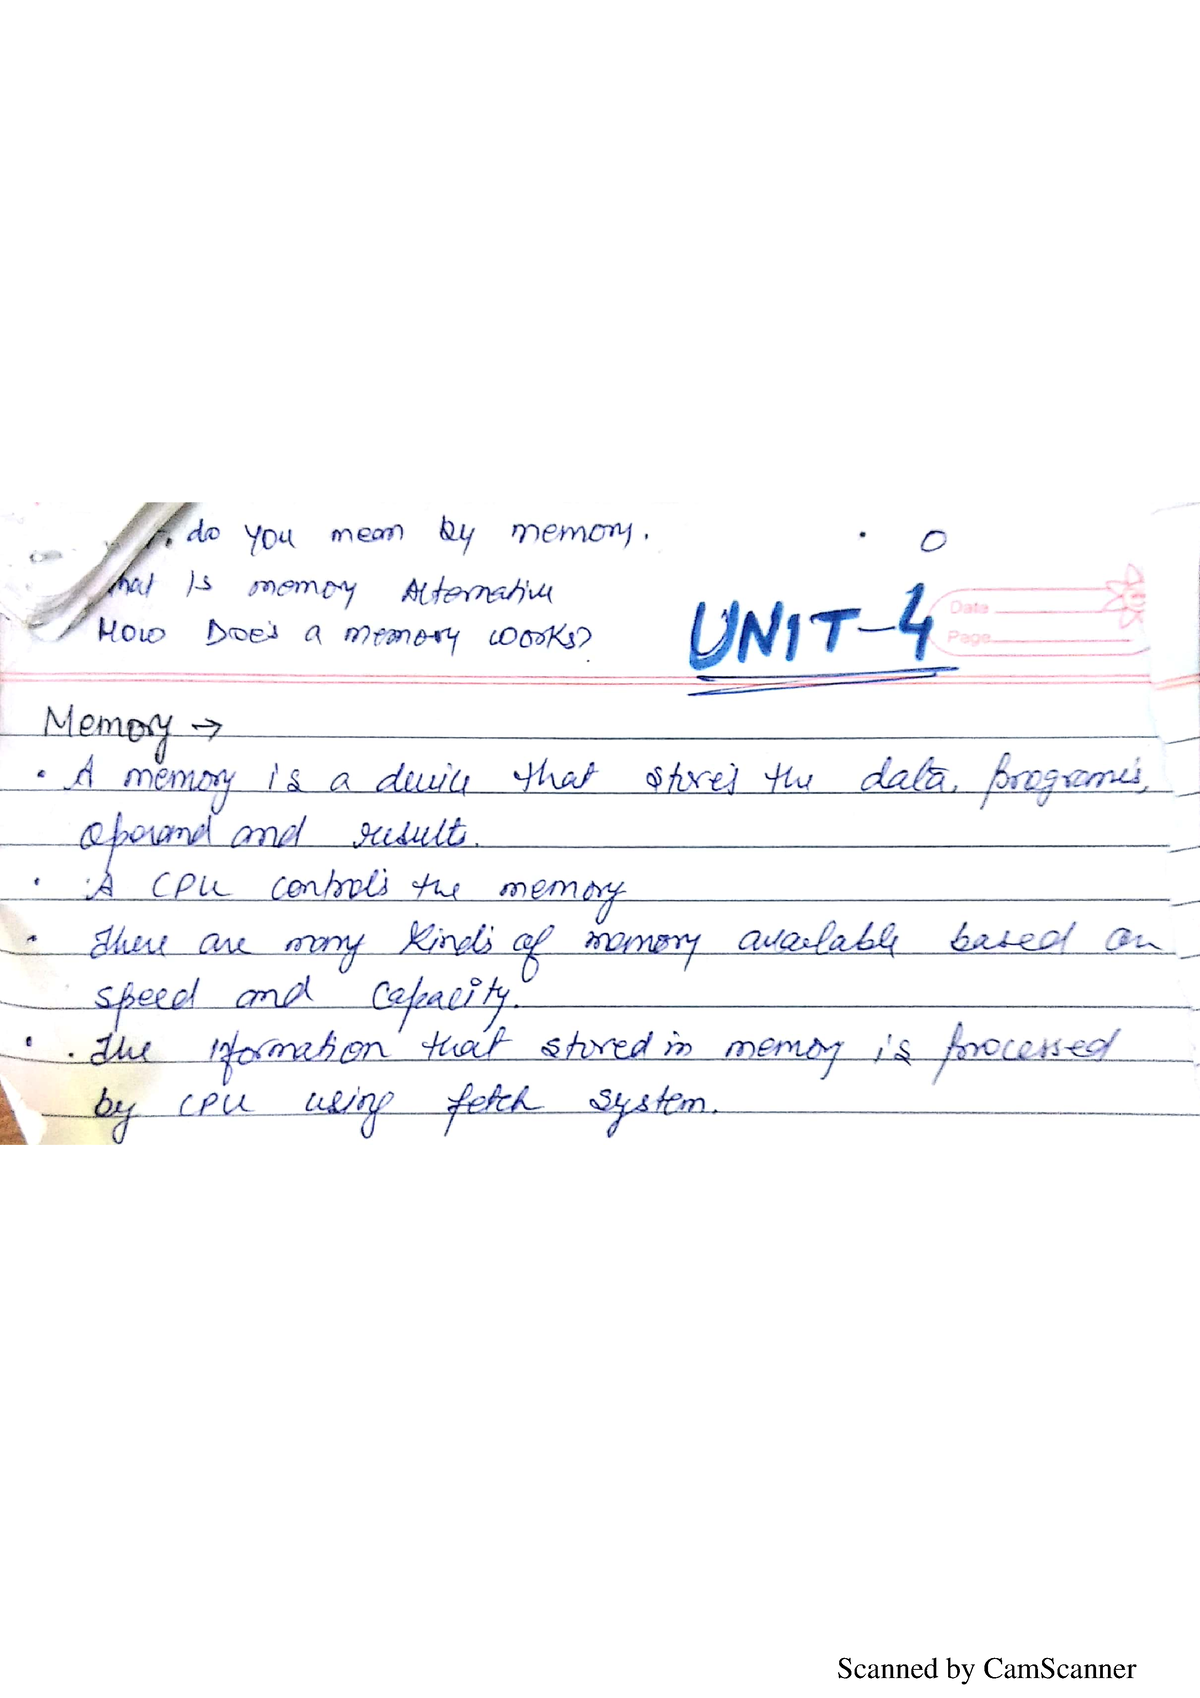 do you mean by memory.
hat Is memory Alternative
How Does a memory works?
UNIT-4
Date
Page
Memory →
• A memory is a device that stores the data, programs,
operand and results.
• A CPU controls the memory
• There are many kinds of memory available based on
speed and capacity.
• The information that stored in memory is processed
by CPU using fetch system.
Scanned by CamScanner